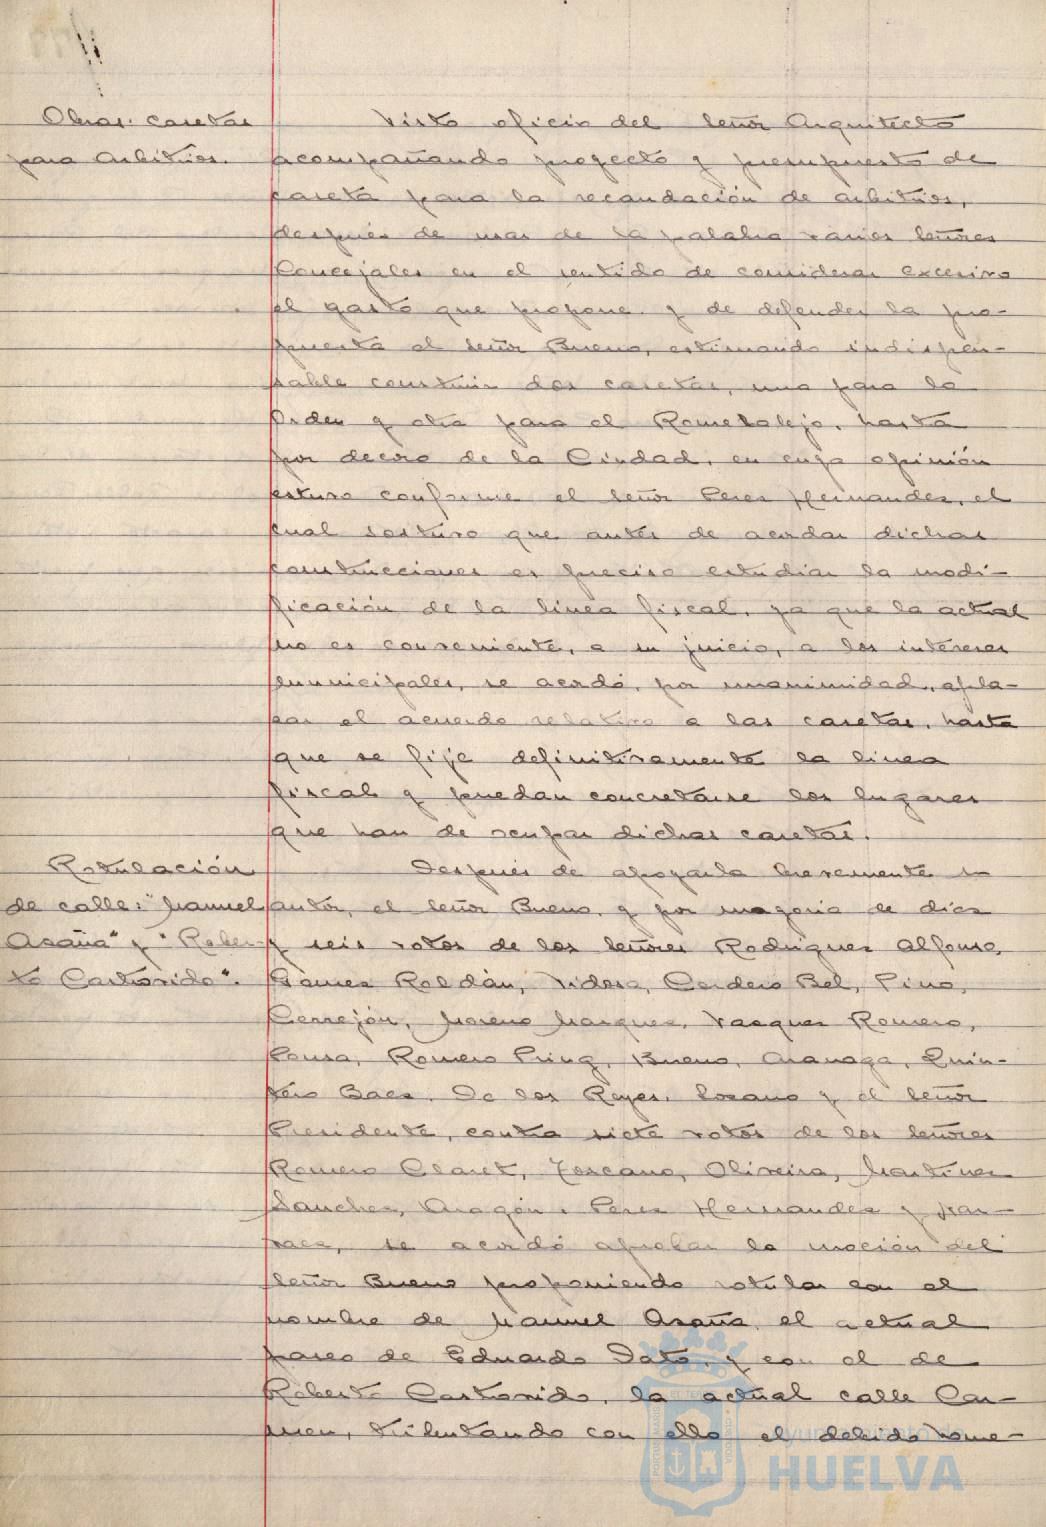 Obras: casetas
para Arbitrios.
Visto oficio del Señor Arquitecto
acompañando proyecto y presupuesto de
caseta para la recaudación de arbitrios,
después de usar de la palabra varios Señores
Concejales en el sentido de considerar excesivo
el gasto que propone y de defender la pro-
puesta el Señor Bueno, estimando indispen-
sable construir dos casetas, una para la
Orden y otra para el Romeralejo, hasta
por decoro de la Ciudad, en cuya opinión
estuvo conforme el Señor Perez Hernandez, el
cual sostuvo que antes de acordar dichas
construcciones es preciso estudiar la modi-
ficación de la linea fiscal, ya que la actual
no es conveniente, a su juicio, a los intereses
municipales, se acordó, por unanimidad, apla-
zar el acuerdo relativo a las casetas, hasta
que se fije definitivamente la linea
fiscal y puedan concretarse los lugares
que han de ocupar dichas casetas.
Rotulación
de calle: "Manuel
Azaña" y "Rober-
to Castrovido".
Después de apoyarla brevemente su
autor, el Señor Bueno, y por mayoria de diez
y seis votos de los Señores Rodriguez Alfonso,
Gómez Roldán, Vidosa, Cordero Bel, Pino,
Cerrejón, Moreno Marquez, Vazquez Romero,
Ponsa, Romero Bueno, Quin-
tero Baez, De los Reyes, Lozano y el Señor
Presidente, contra siete votos de los Señores
Romero Claret, Toscano, Oliveira, Martinez
Sanchez, Aragón, Perez Hernandez y Nar-
vaez, se acordó aprobar la moción del
Señor Bueno proponiendo rotular con el
nombre de Manuel Azaña el actual
paseo de Eduardo Dato, y con el de
Roberto Castrovido, la actual calle Car-
men, tributando con ello el debido home-
Ayuntamiento de
HUELVA